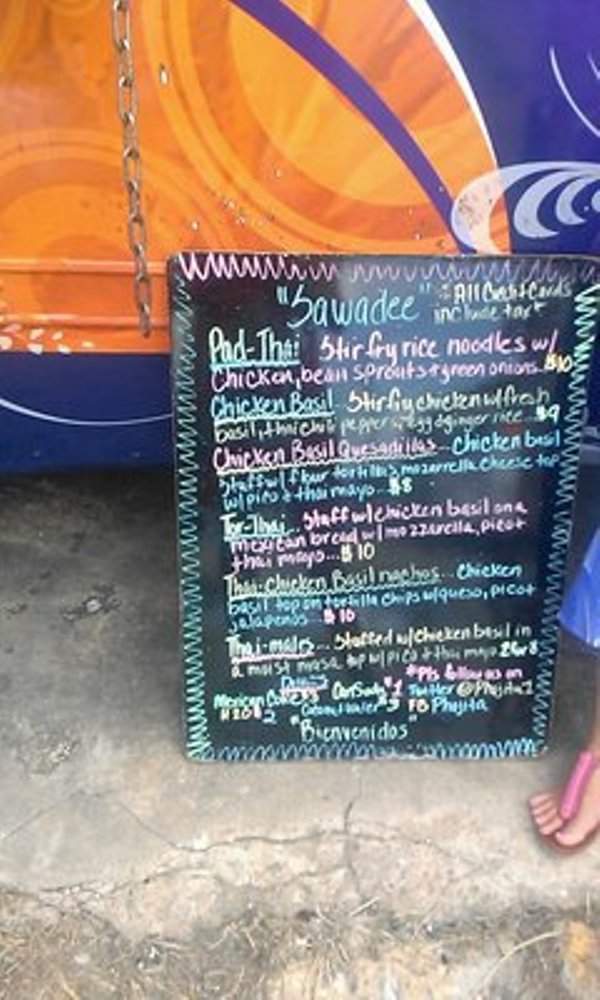 "Sawadee" All Credit Cards
include tax
Pad-Thai Stir fry rice noodles w/
Chicken, bean sprouts + green onions..$10
Chicken Basil...Stir fry chicken w/ fresh
basil, thai chili pepper ginger rice...$9
Chicken Basil Quesadillas...Chicken basil
Stuff w/ flour tortillas mozarrella cheese top
w/ pico + thai mayo...$8
Tor-Thai...Stuff w/ chicken basil on a
mexican bread w/ mozzarella, pico +
thai mayo...$10
Thai-Chicken Basil nachos...Chicken
basil top on tortilla chips w/ queso, pico +
jalapenos...$10
Thai-males...Stuffed w/ chicken basil in
a moist masa top w/ pico + thai mayo 2 for 8
*Pls follow us on
Mexican Coke $3 Can Soda $1 Twitter @Phujita1
H20 $2 Coconut Water $3 FB Phujita
"Bienvenidos"